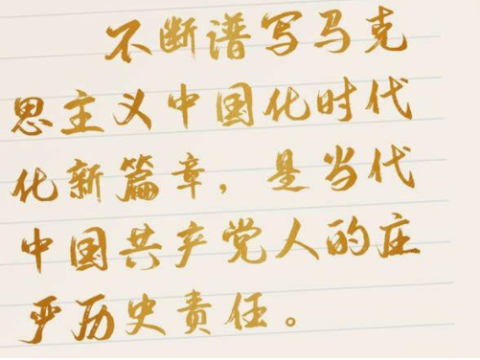 不断谱写马克
思主义中国化时代
化新篇章，是当代
中国共产党人的庄
严历史责任。